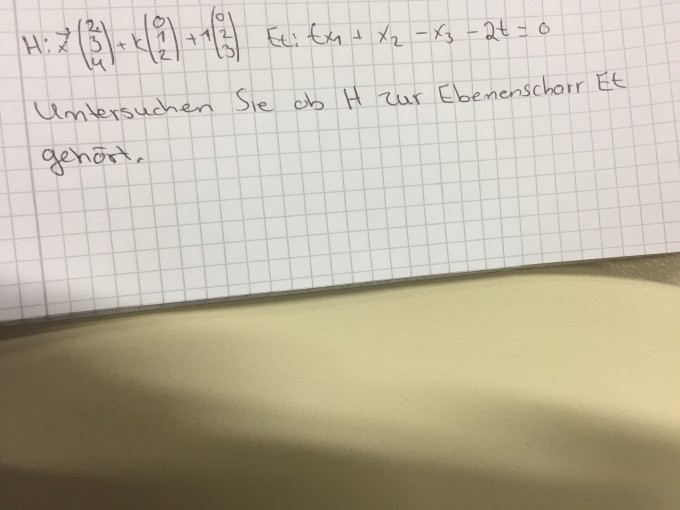 H: x⃗ (2 3 4) + k (0 1 2) + 1 (0 2 3) Et: tx1 + x2 - x3 - 2t = 0
Untersuchen Sie ob H zur Ebenenscharr Et
gehört.